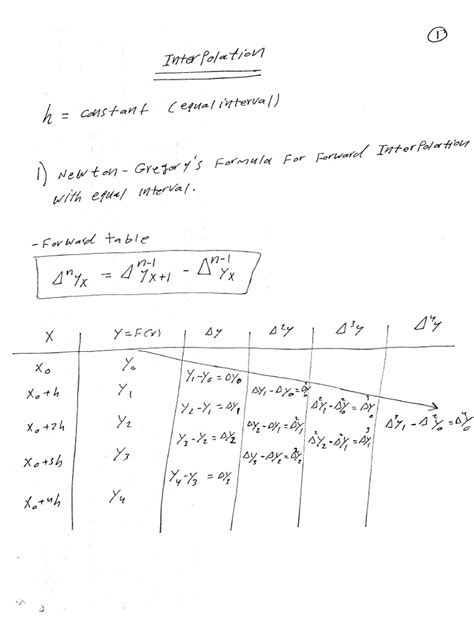 ①
Interpolation
h = constant (equal interval)
1) Newton-Gregory's Formula For Forward Interpolation
with equal interval.
- Forward table
Δⁿyₓ = Δⁿ⁻¹yₓ₊₁ - Δⁿ⁻¹yₓ
X | Y=F(x) | Δy | Δ²y | Δ³y | Δ⁴y
X₀ | Y₀
Y₁-Y₀=ΔY₀
X₀+h | Y₁ | ΔY₁-ΔY₀=Δ²Y₀
Y₂-Y₁=ΔY₁ | Δ²Y₁-Δ²Y₀=Δ³Y₀
X₀+2h | Y₂ | ΔY₂-ΔY₁=Δ²Y₁ | Δ³Y₁-Δ³Y₀=Δ⁴Y₀
Y₃-Y₂=ΔY₂ | Δ²Y₂-Δ²Y₁=Δ³Y₁
X₀+3h | Y₃ | ΔY₃-ΔY₂=Δ²Y₂
Y₄-Y₃=ΔY₃
X₀+4h | Y₄